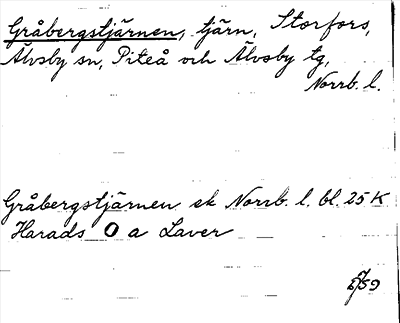 Gråbergstjärnen, tjärn, Storfors,
Älvsby sn, Piteå och Älvsby tg,
Norrb. l.
Gråbergstjärnen ek Norrb. l. bl. 25 K
Harads O a Laver
59